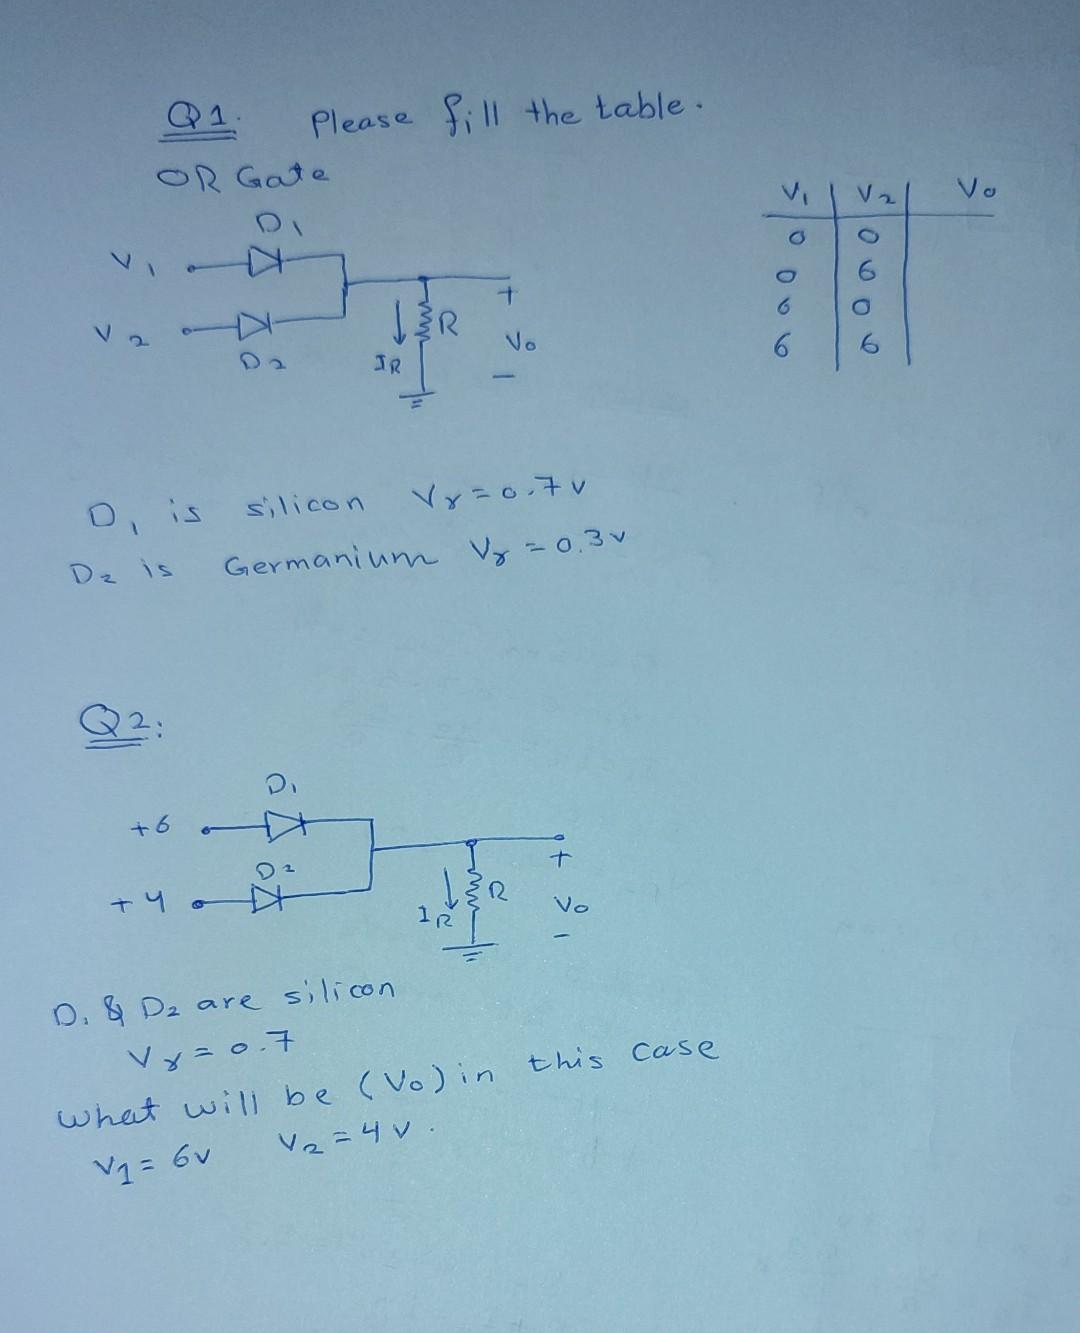 Q1. Please fill the table.
OR Gate
D1
V1
V2
D2
IR
R
+
Vo
-
V1 V2 Vo
0 0
0 6
6 0
6 6
D1 is silicon Vγ=0.7v
D2 is Germanium Vγ=0.3v
Q2:
D1
+6
D2
+4
IR
R
+
Vo
-
D1 & D2 are silicon
Vγ=0.7
what will be (Vo) in this case
V1=6v V2=4v.